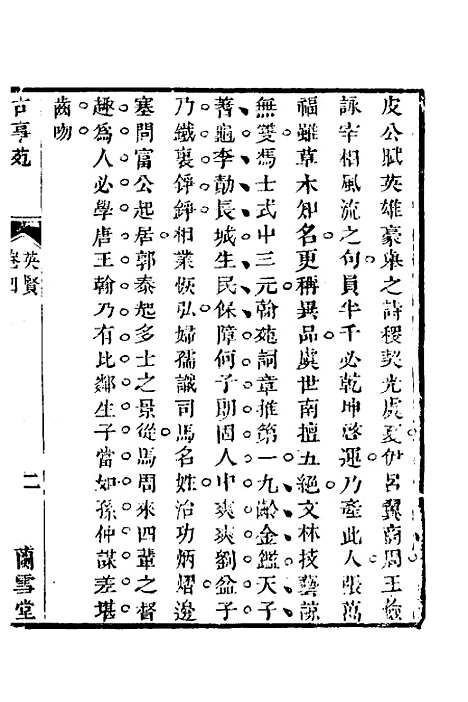 皮公賦英雄豪舉之詩稷契光虞夏伊呂翼商周王儉
詠宰相風流之句員半千必乾坤啓運乃產此人張萬
福雖草木知名更稱異品虞世南擅五絕文林技藝諒
無雙馮士式中三元翰苑詞章推第一九齡金鑑天子
善龜李勣長城生民保障何子朗國人中爽爽劉盆子
乃鐵裏錚錚相業恢弘婦孺識司馬名姓治功炳熠邊
塞問富公起居郭泰起多士之景從馬周來四輩之督
趣爲人必學唐王翰乃有比鄰生子當如孫仲謀差堪
齒吻
古事苑
英賢
卷四
二
蘭雪堂